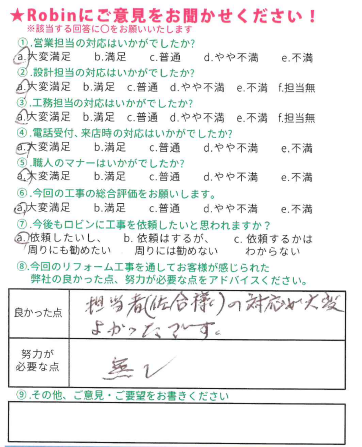 ★Robinにご意見をお聞かせください！
※該当する回答に○をお願いいたします
①.営業担当の対応はいかがでしたか?
a.大変満足 b.満足 c.普通 d.やや不満 e.不満
②.設計担当の対応はいかがでしたか?
a.大変満足 b.満足 c.普通 d.やや不満 e.不満 f.担当無
③.工務担当の対応はいかがでしたか?
a.大変満足 b.満足 c.普通 d.やや不満 e.不満 f.担当無
④.電話受付、来店時の対応はいかがでしたか?
a.大変満足 b.満足 c.普通 d.やや不満 e.不満
⑤.職人のマナーはいかがでしたか?
a.大変満足 b.満足 c.普通 d.やや不満 e.不満
⑥.今回の工事の総合評価をお願いします。
a.大変満足 b.満足 c.普通 d.やや不満 e.不満
⑦.今後もロビンに工事を依頼したいと思われますか?
a.依頼したいし、 b. 依頼はするが、 c. 依頼するかは
周りにも勧めたい 周りには勧めない わからない
⑧.今回のリフォーム工事を通してお客様が感じられた
弊社の良かった点、努力が必要な点をアドバイスください。
良かった点
担当者(佐合様)の対応が大変
よかったです。
努力が
必要な点
無し
⑨.その他、ご意見・ご要望をお書きください